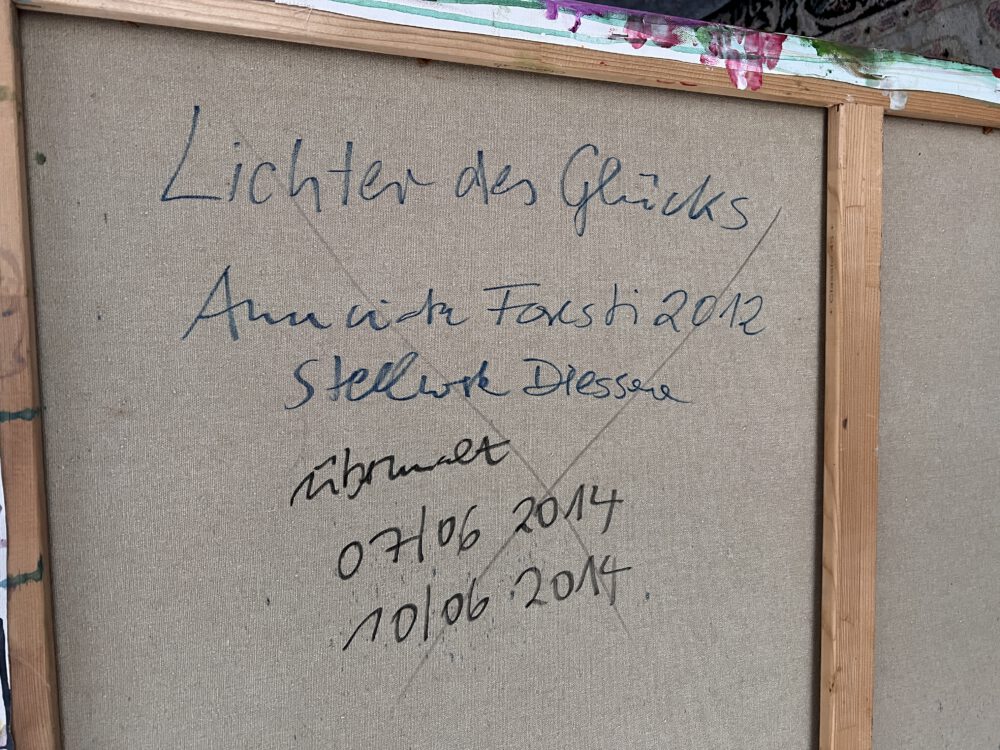 Lichter des Glücks
Foresti 2012
Stellwerk Diessen
übermalt
07/06 2014
10/06 2014